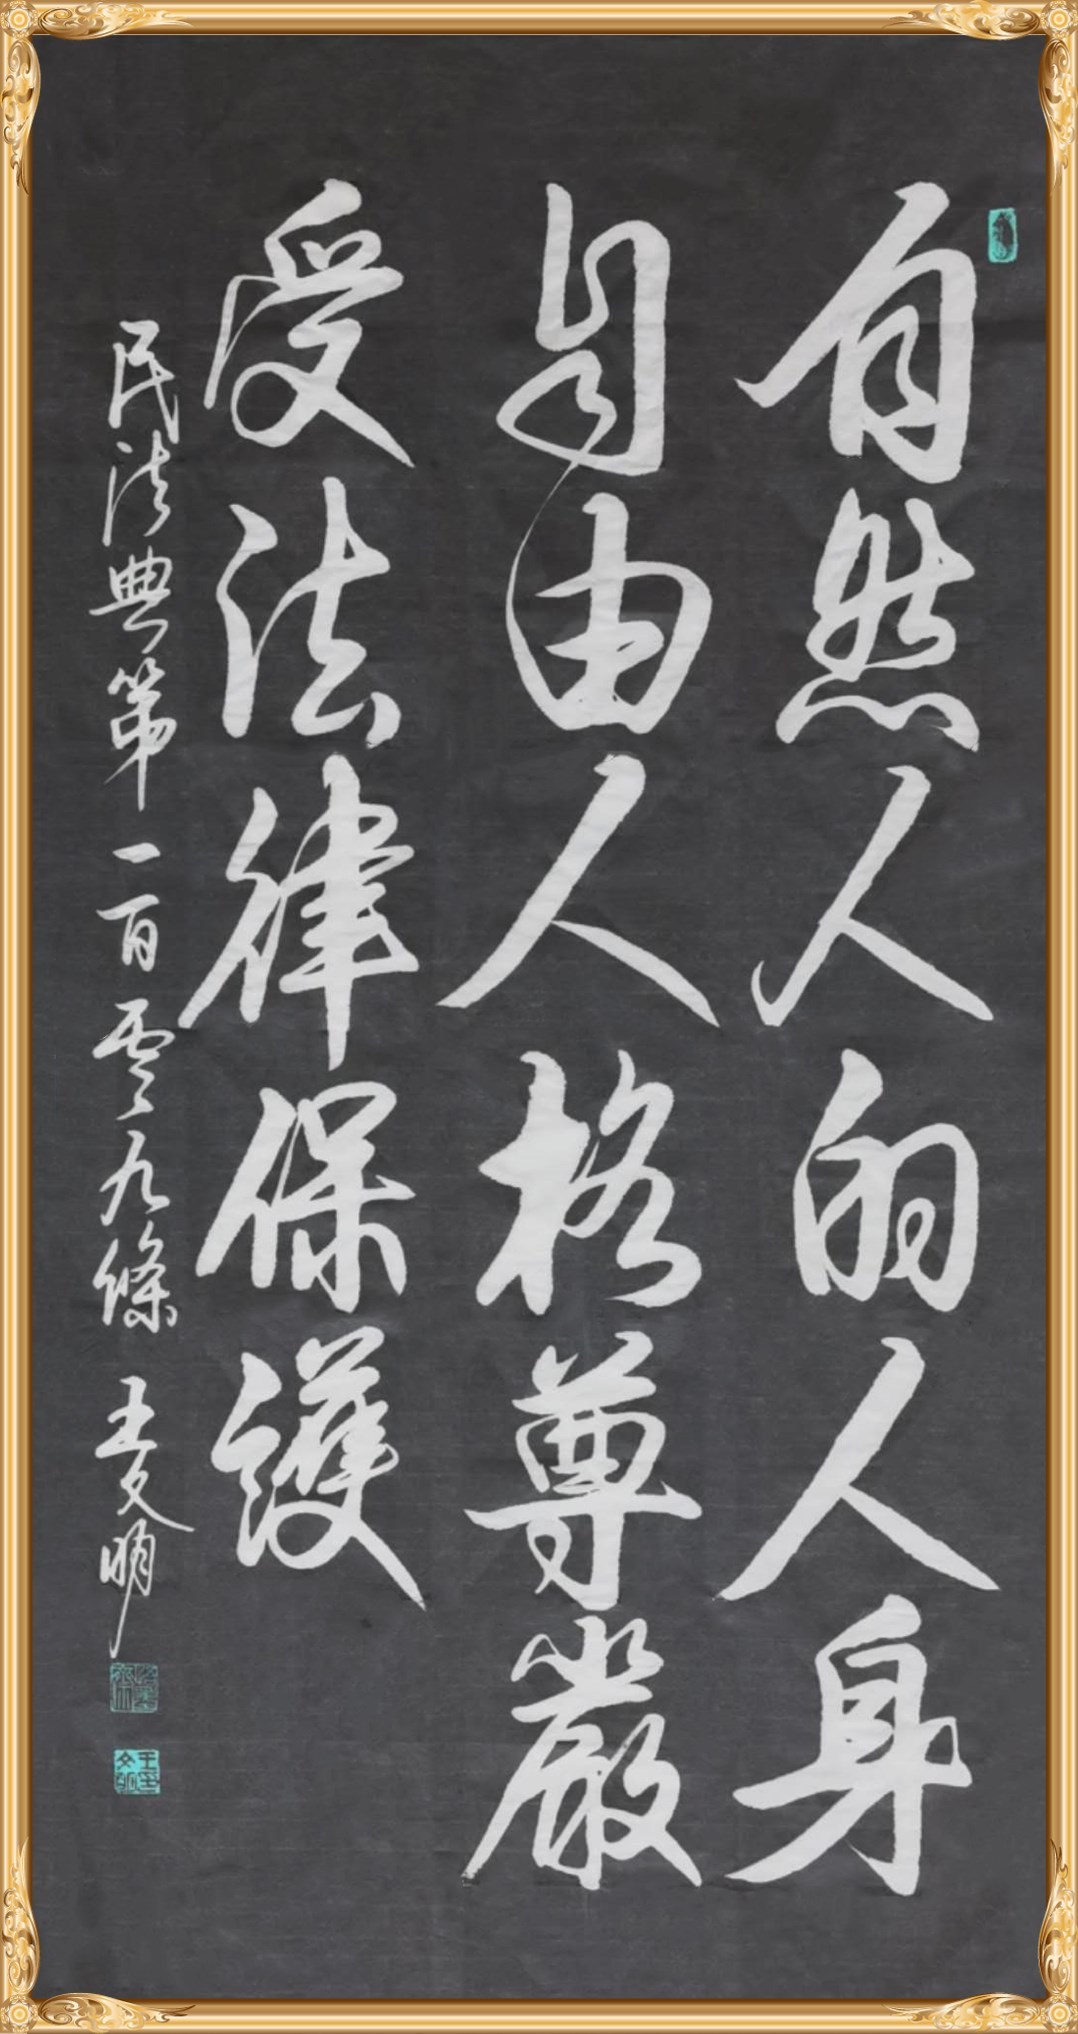 自然人的人身
自由人格尊嚴
受法律保護
民法典第一百零九條 王文明